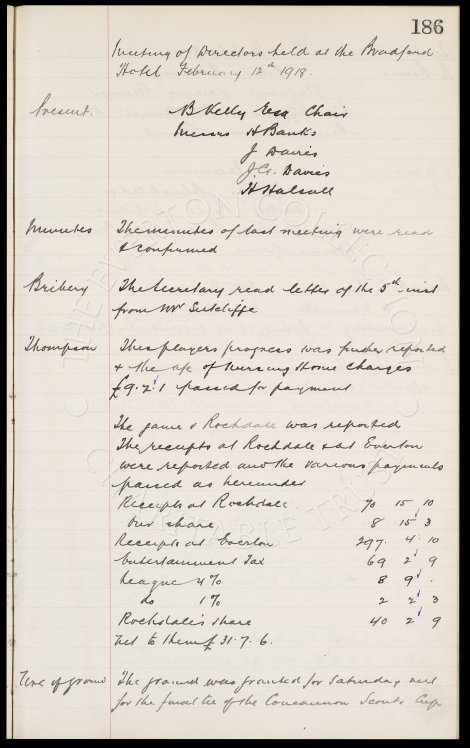 186
Meeting of Directors held at the Bradford
Hotel February 12th 1918.
Present. B Kelly Esq Chair
Messrs H Banks
J Davies
J.G. Davies
H Halsall
Minutes The minutes of last meeting were read
& confirmed
Bribery The Secretary read letter of the 5th inst
from Mr Sutcliffe
Thompson This players progress was further reported
& the a/c of Nursing Home charges
£9.2.1 passed for payment
The game v Rochdale was reported
The receipts at Rochdale & at Everton
were reported and the various payments
passed as hereunder
Receipts at Rochdale. 70 15 10
Our share 8 15 3
Receipts at Everton 297. 4 10
Entertainment Tax 69 2 9
League 4% 8 9 .
do 1% 2 2 3
Rochdale's share 40 2 9
Net to them £31.7.6.
Use of ground The ground was granted for Saturday next
for the final tie of the Concannon Scouts Cup
THE EVERTON COLLECTION
CHARITABLE TRUST